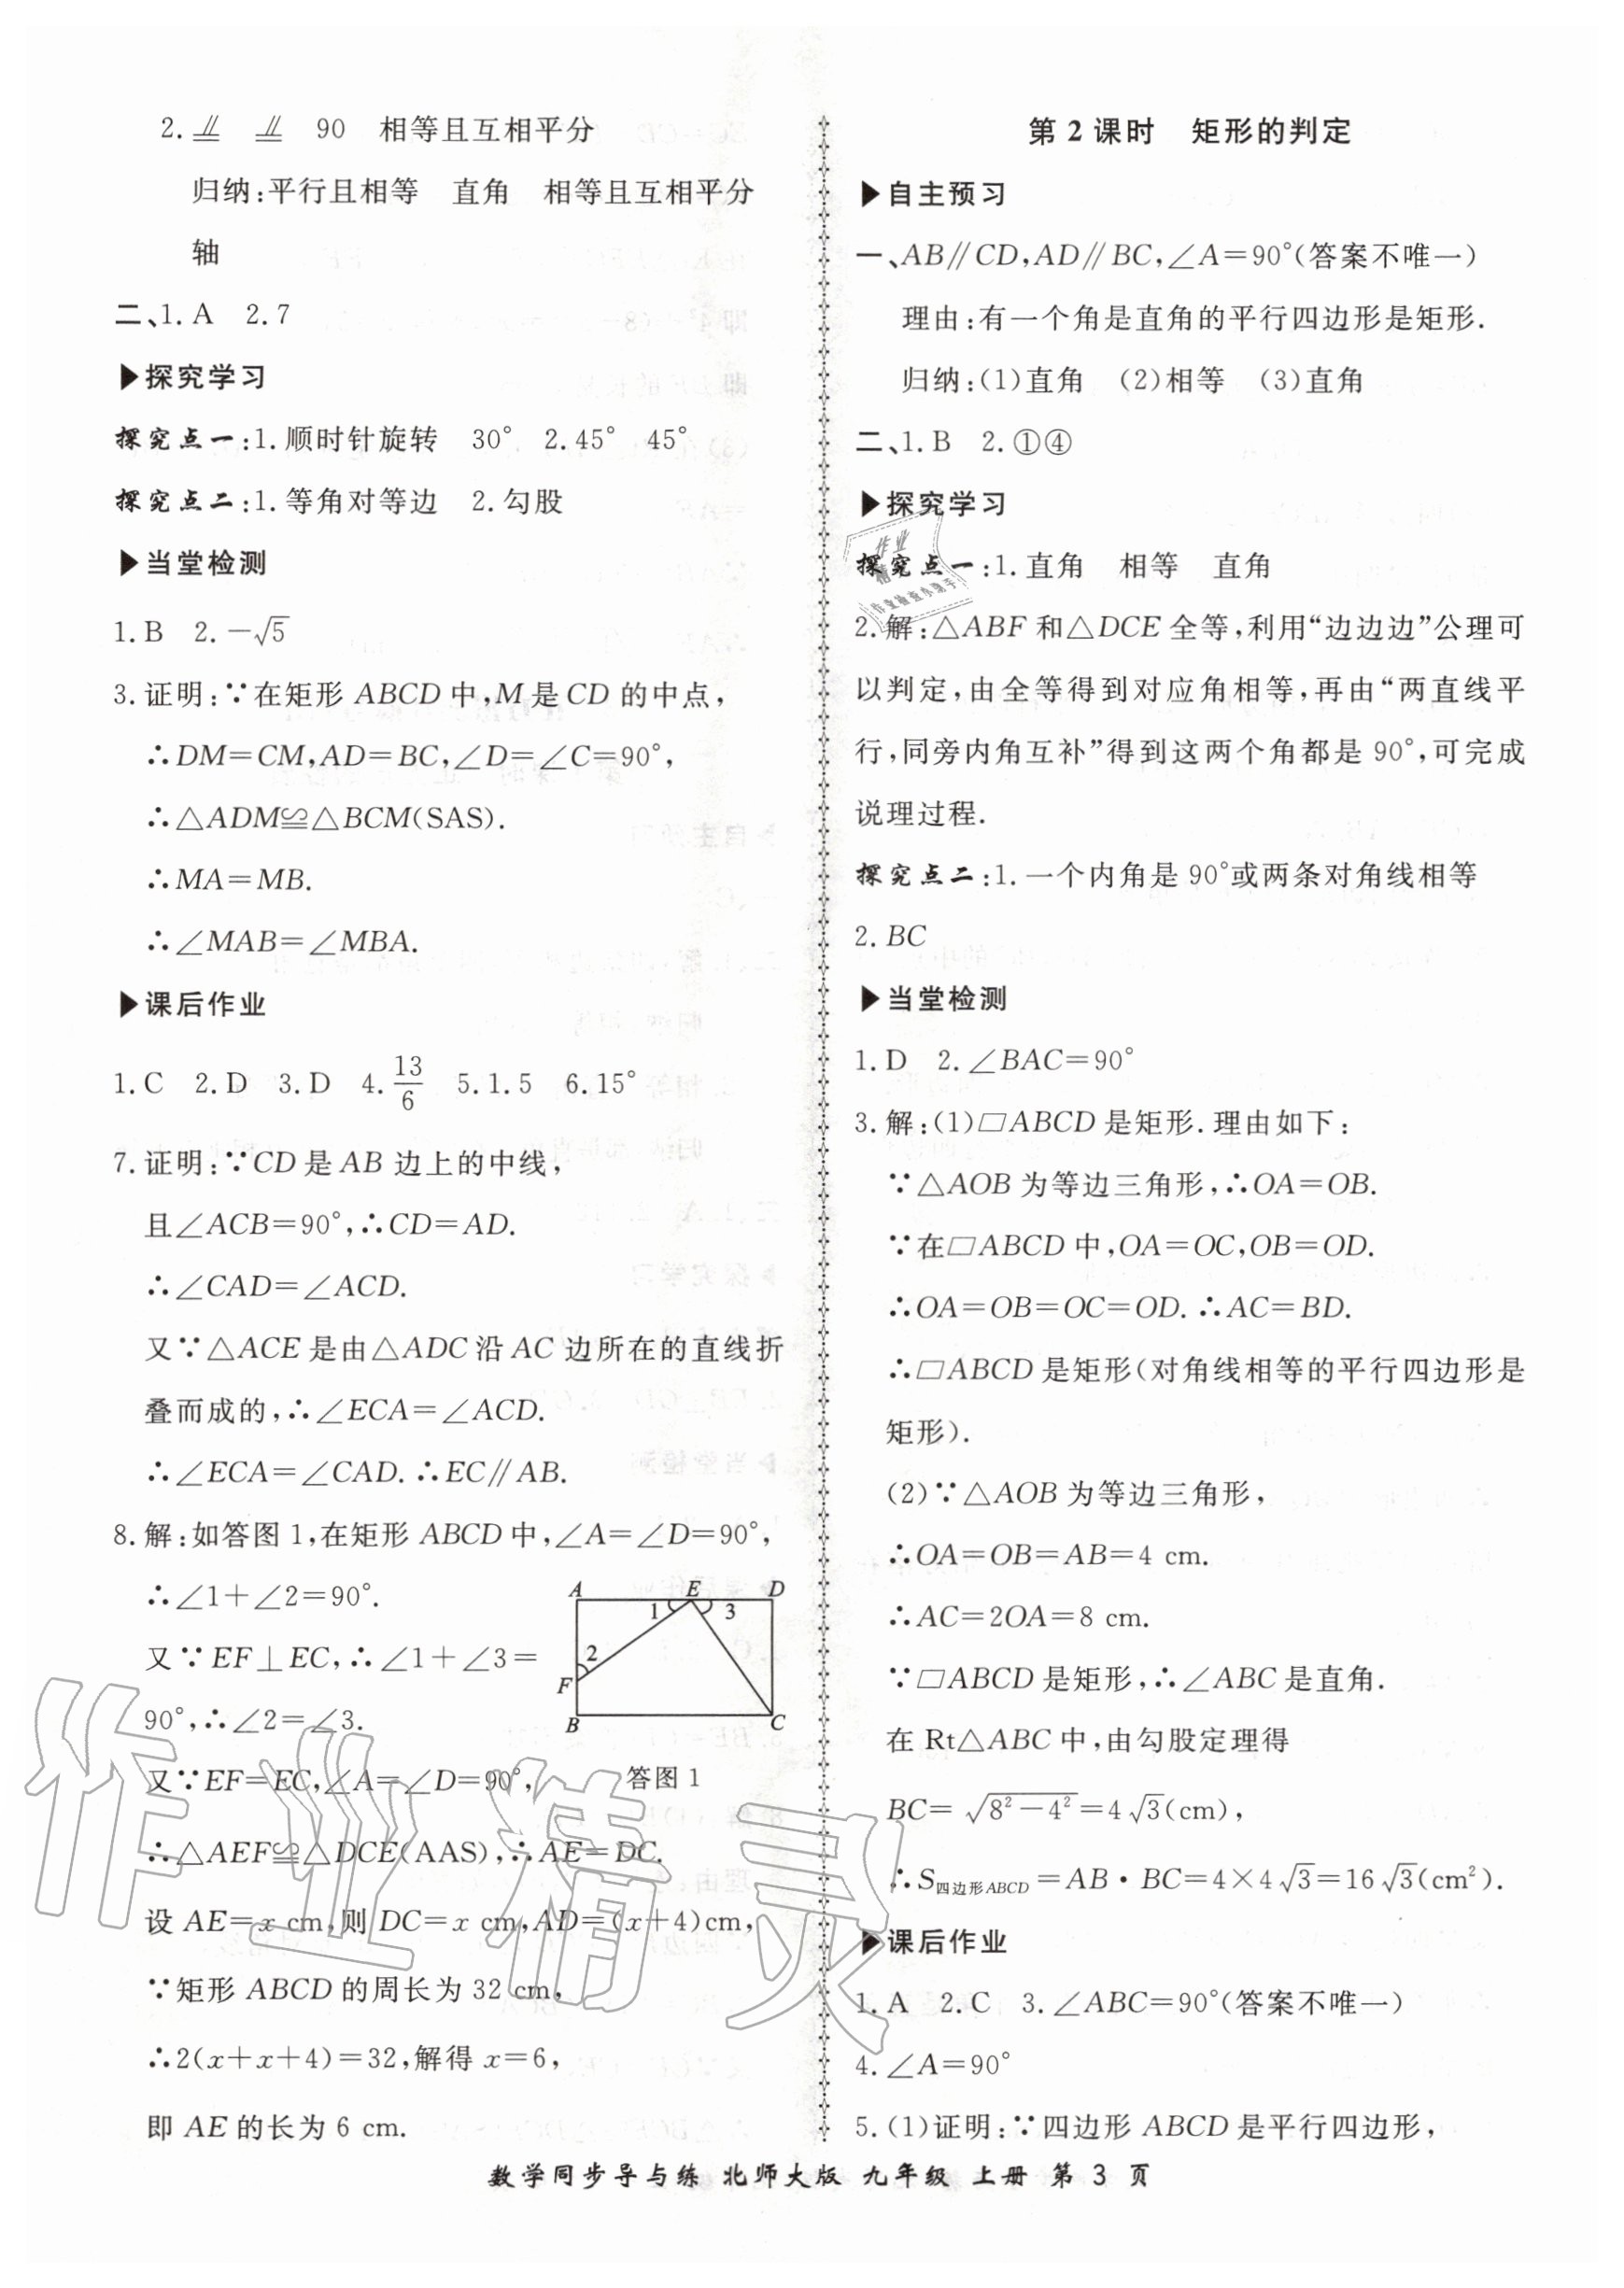 2. ⫽ ⫽ 90 相等且互相平分
归纳:平行且相等 直角 相等且互相平分
轴
二、1. A 2. 7
▶探究学习
探究点一:1. 顺时针旋转 30° 2. 45° 45°
探究点二:1. 等角对等边 2. 勾股
▶当堂检测
1. B 2. −√5
3. 证明:∵在矩形 ABCD 中,M 是 CD 的中点,
∴DM=CM,AD=BC,∠D=∠C=90°,
∴△ADM≌△BCM(SAS).
∴MA=MB.
∴∠MAB=∠MBA.
▶课后作业
1. C 2. D 3. D 4. 13/6 5. 1. 5 6. 15°
7. 证明:∵CD 是 AB 边上的中线,
且∠ACB=90°,∴CD=AD.
∴∠CAD=∠ACD.
又∵△ACE 是由△ADC 沿 AC 边所在的直线折
叠而成的,∴∠ECA=∠ACD.
∴∠ECA=∠CAD. ∴EC∥AB.
8. 解:如答图 1,在矩形 ABCD 中,∠A=∠D=90°,
∴∠1+∠2=90°.
又∵EF⊥EC,∴∠1+∠3=
90°,∴∠2=∠3.
又∵EF=EC,∠A=∠D=90°,
A E D
1 3
2
F
B C
答图 1
∴△AEF≌△DCE(AAS),∴AE=DC.
设 AE=x cm,则 DC=x cm,AD=(x+4)cm,
∵矩形 ABCD 的周长为 32 cm,
∴2(x+x+4)=32,解得 x=6,
即 AE 的长为 6 cm.
第 2 课时 矩形的判定
▶自主预习
一、AB∥CD,AD∥BC,∠A=90°(答案不唯一)
理由:有一个角是直角的平行四边形是矩形.
归纳:(1)直角 (2)相等 (3)直角
二、1. B 2. ①④
▶探究学习
探究点一:1. 直角 相等 直角
2. 解:△ABF 和△DCE 全等,利用“边边边”公理可
以判定,由全等得到对应角相等,再由“两直线平
行,同旁内角互补”得到这两个角都是 90°,可完成
说理过程.
探究点二:1. 一个内角是 90°或两条对角线相等
2. BC
▶当堂检测
1. D 2. ∠BAC=90°
3. 解:(1)▱ABCD 是矩形. 理由如下:
∵△AOB 为等边三角形,∴OA=OB.
∵在▱ABCD 中,OA=OC,OB=OD.
∴OA=OB=OC=OD. ∴AC=BD.
∴▱ABCD 是矩形(对角线相等的平行四边形是
矩形).
(2)∵△AOB 为等边三角形,
∴OA=OB=AB=4 cm.
∴AC=2OA=8 cm.
∵▱ABCD 是矩形,∴∠ABC 是直角.
在 Rt△ABC 中,由勾股定理得
BC=√(8²−4²)=4√3(cm),
∴S四边形ABCD=AB·BC=4×4√3=16√3(cm²).
▶课后作业
1. A 2. C 3. ∠ABC=90°(答案不唯一)
4. ∠A=90°
5. (1)证明:∵四边形 ABCD 是平行四边形,
数学同步导与练 北师大版 九年级 上册 第 3 页
作业精灵